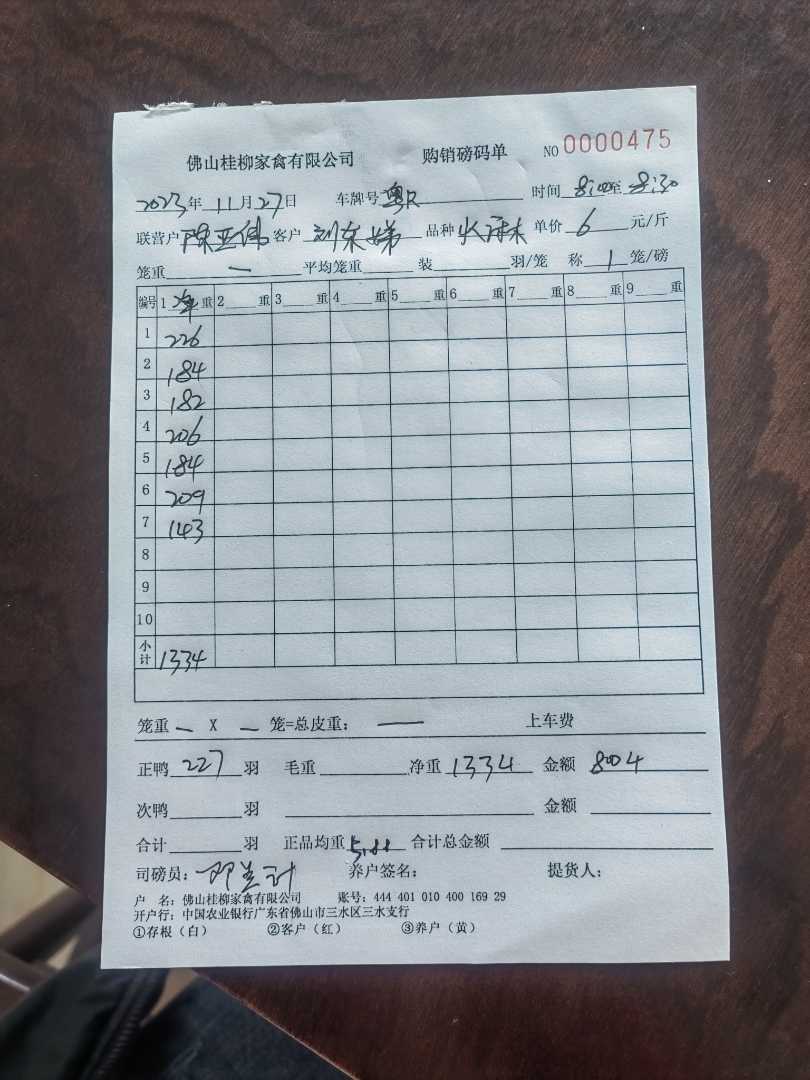 佛山桂柳家禽有限公司 购销磅码单 NO 0000475
2023年 11月27日 车牌号 粤R 时间 8:00至 8:30
联营户 陈亚伟 客户 刘东娣 品种 单价 6 元/斤
笼重 — 平均笼重 装 羽/笼 称 1 笼/磅
编号 1 净 重 2 重 3 重 4 重 5 重 6 重 7 重 8 重 9 重
1 226
2 184
3 182
4 206
5 184
6 209
7 143
8
9
10
小计 1334
笼重 — X — 笼=总皮重: — 上车费
正鸭 227 羽 毛重 净重 1334 金额 8004
次鸭 羽 金额
合计 羽 正品均重 5.88 合计总金额
司磅员: 养户签名: 提货人:
户 名: 佛山桂柳家禽有限公司 账号: 444 401 010 400 169 29
开户行: 中国农业银行广东省佛山市三水区三水支行
①存根(白) ②客户(红) ③养户(黄)